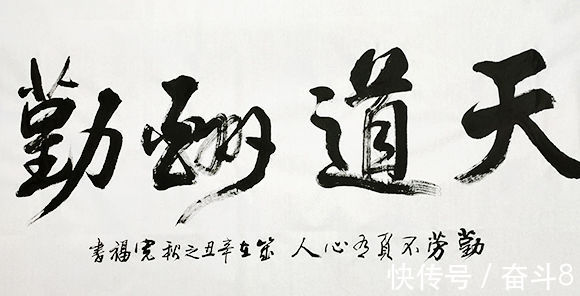 天道酬勤
勤劳不負有心人 岁在辛丑之秋 福書
快传号 / 奋斗8